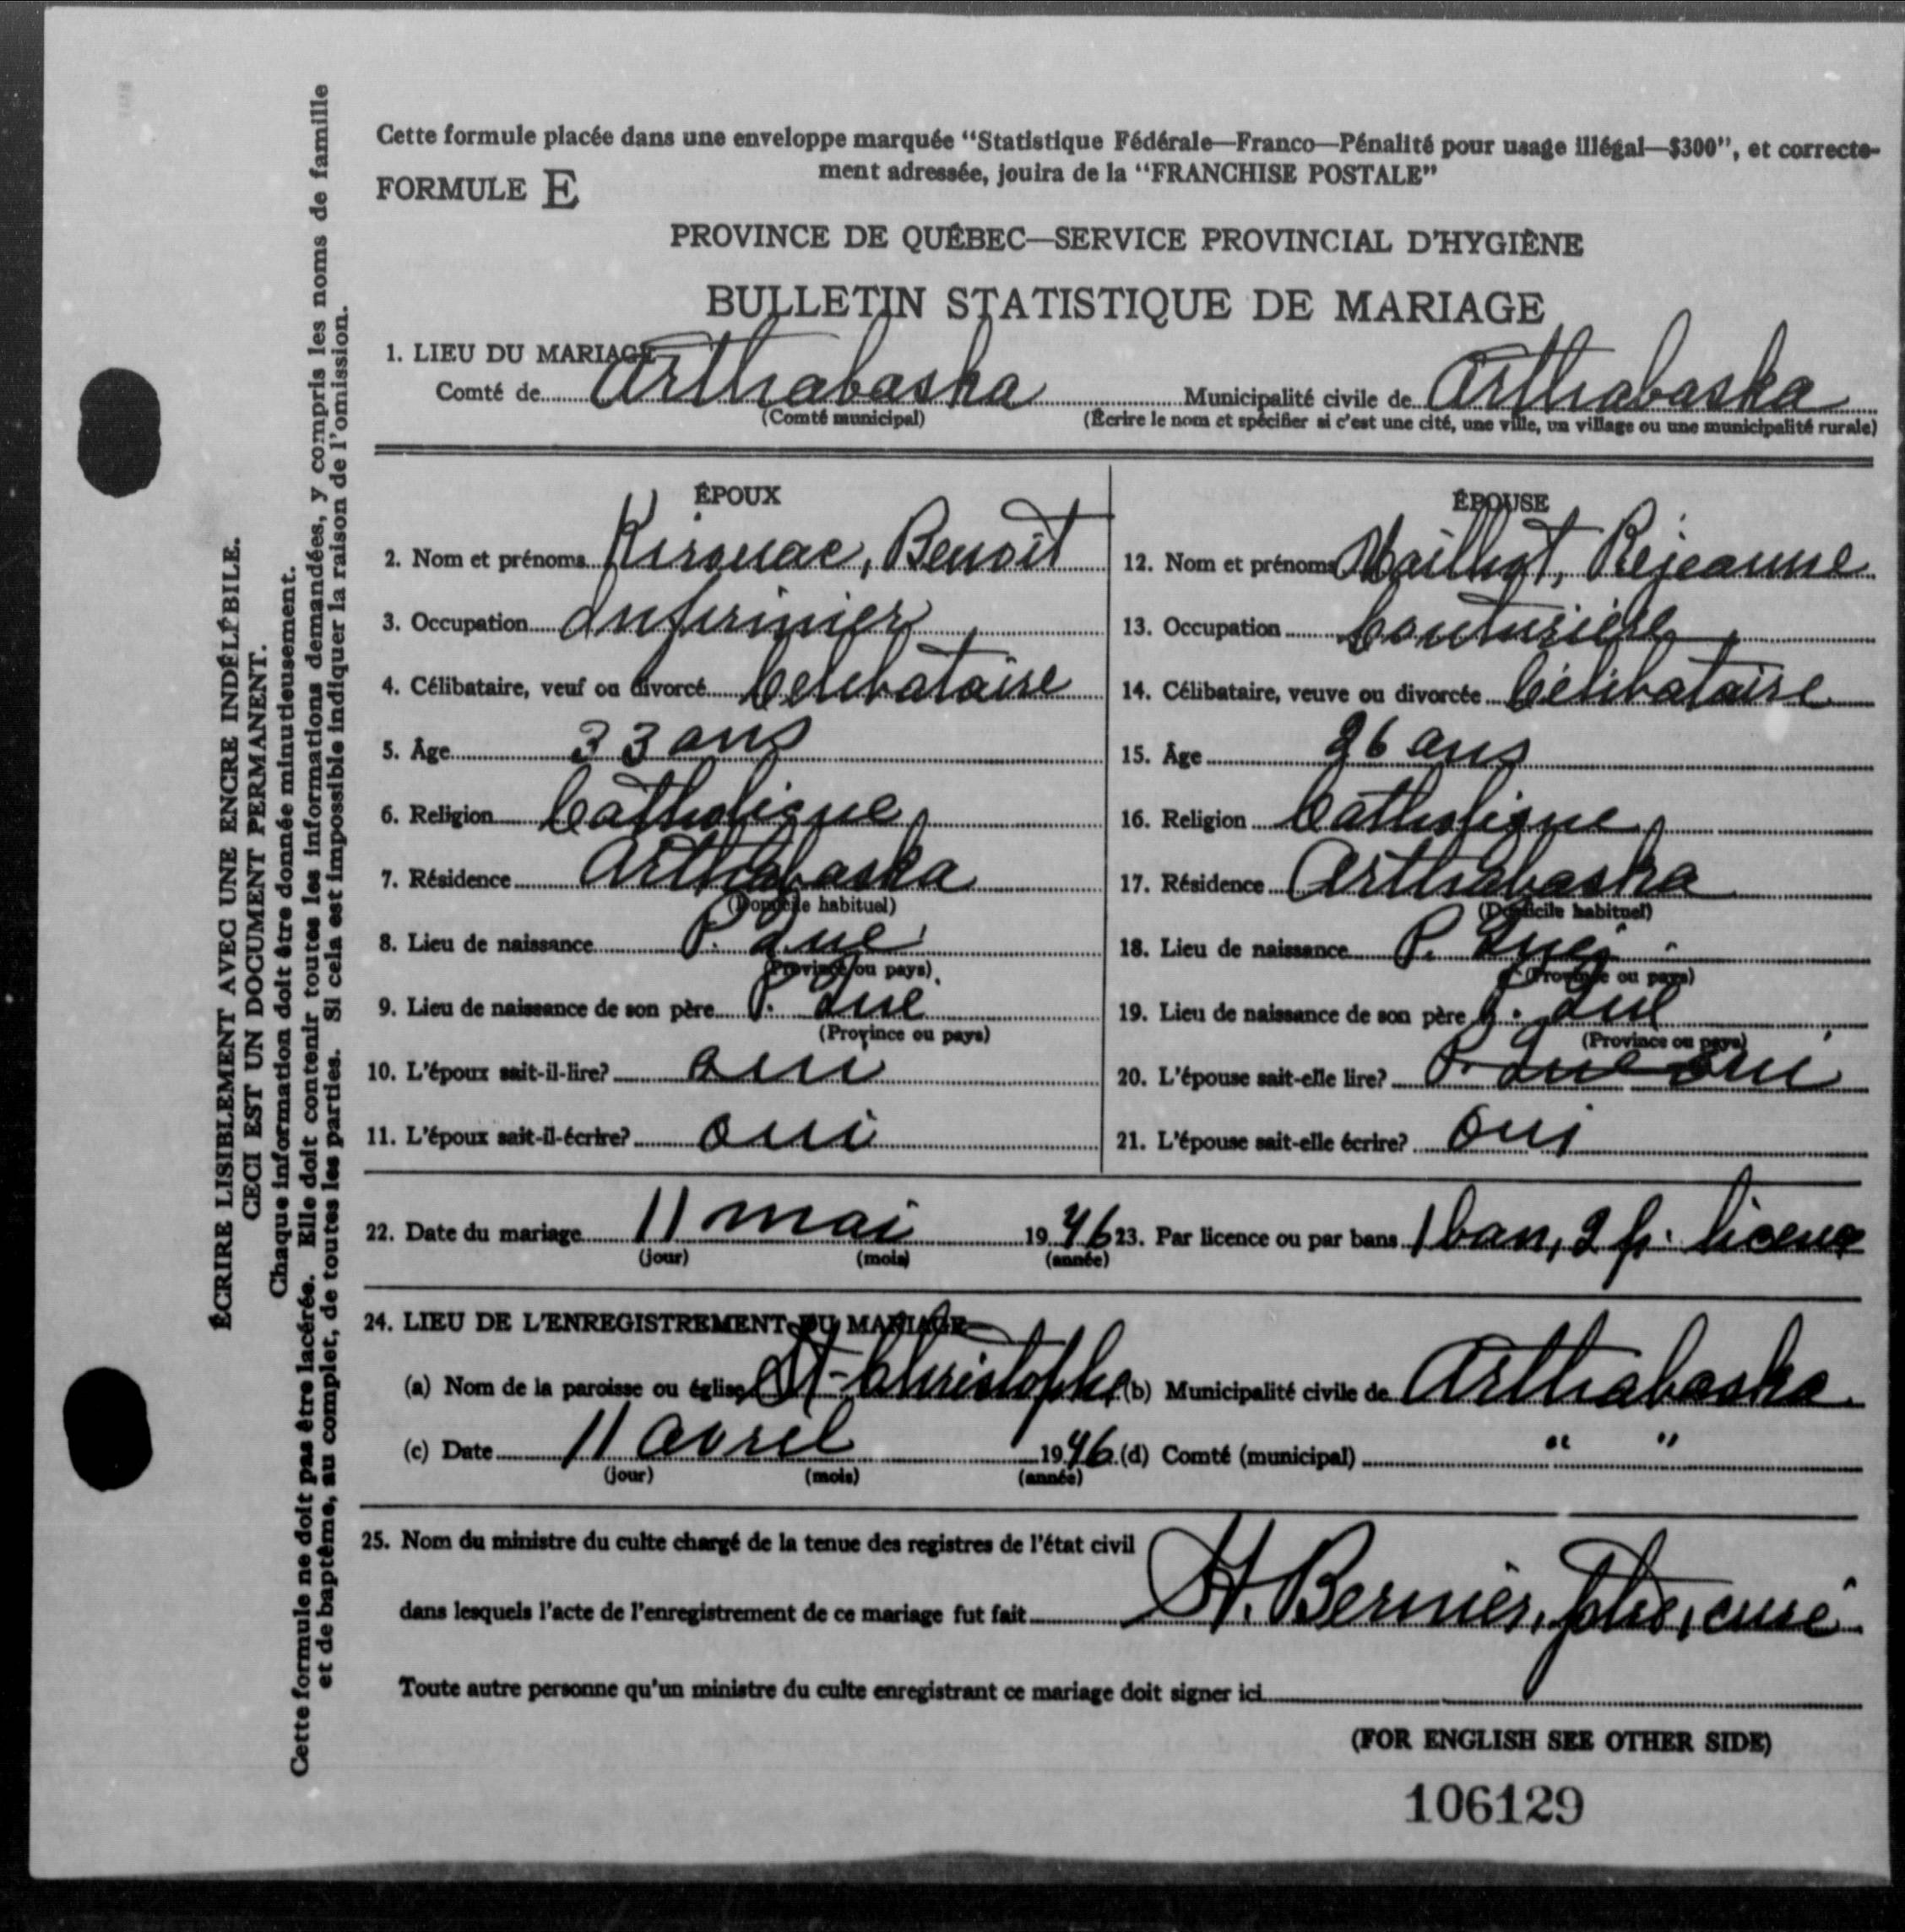 Cette formule placée dans une enveloppe marquée “Statistique Fédérale—Franco—Pénalité pour usage illégal—$300”, et correcte-
ment adressée, jouira de la “FRANCHISE POSTALE”
FORMULE E
PROVINCE DE QUÉBEC—SERVICE PROVINCIAL D'HYGIÈNE
BULLETIN STATISTIQUE DE MARIAGE
1. LIEU DU MARIAGE
Comté de Arthabaska Municipalité civile de Arthabaska
(Comté municipal) (Écrire le nom et spécifier si c'est une cité, une ville, un village ou une municipalité rurale)
ÉPOUX
2. Nom et prénoms Kirouac, Benoît
3. Occupation Infirmier
4. Célibataire, veuf ou divorcé Célibataire
5. Âge 33 ans
6. Religion Catholique
7. Résidence Arthabaska
(Domicile habituel)
8. Lieu de naissance P. Qué
(Province ou pays)
9. Lieu de naissance de son père P. Qué
(Province ou pays)
10. L'époux sait-il-lire? oui
11. L'époux sait-il-écrire? oui
ÉPOUSE
12. Nom et prénoms Mailhot, Rejeanne
13. Occupation Couturière
14. Célibataire, veuve ou divorcée Célibataire
15. Âge 26 ans
16. Religion Catholique
17. Résidence Arthabaska
(Domicile habituel)
18. Lieu de naissance P. Qué
(Province ou pays)
19. Lieu de naissance de son père P. Qué
(Province ou pays)
20. L'épouse sait-elle lire? P. Que oui
21. L'épouse sait-elle écrire? oui
22. Date du mariage 11 mai 1946 23. Par licence ou par bans 1 ban, 2 p. licence
(jour) (mois) (année)
24. LIEU DE L'ENREGISTREMENT DU MARIAGE
(a) Nom de la paroisse ou église St-Christophe (b) Municipalité civile de Arthabaska
(c) Date 11 avril 1946 (d) Comté (municipal) " "
(jour) (mois) (année)
25. Nom du ministre du culte chargé de la tenue des registres de l'état civil
dans lesquels l'acte de l'enregistrement de ce mariage fut fait H. Bernier, ptre, curé
Toute autre personne qu'un ministre du culte enregistrant ce mariage doit signer ici
(FOR ENGLISH SEE OTHER SIDE)
106129
ÉCRIRE LISIBLEMENT AVEC UNE ENCRE INDÉLÉBILE.
CECI EST UN DOCUMENT PERMANENT.
Chaque information doit être donnée minutieusement.
Cette formule ne doit pas être lacérée. Elle doit contenir toutes les informations demandées, y compris les noms de famille
et de baptême, au complet, de toutes les parties. Si cela est impossible indiquer la raison de l'omission.